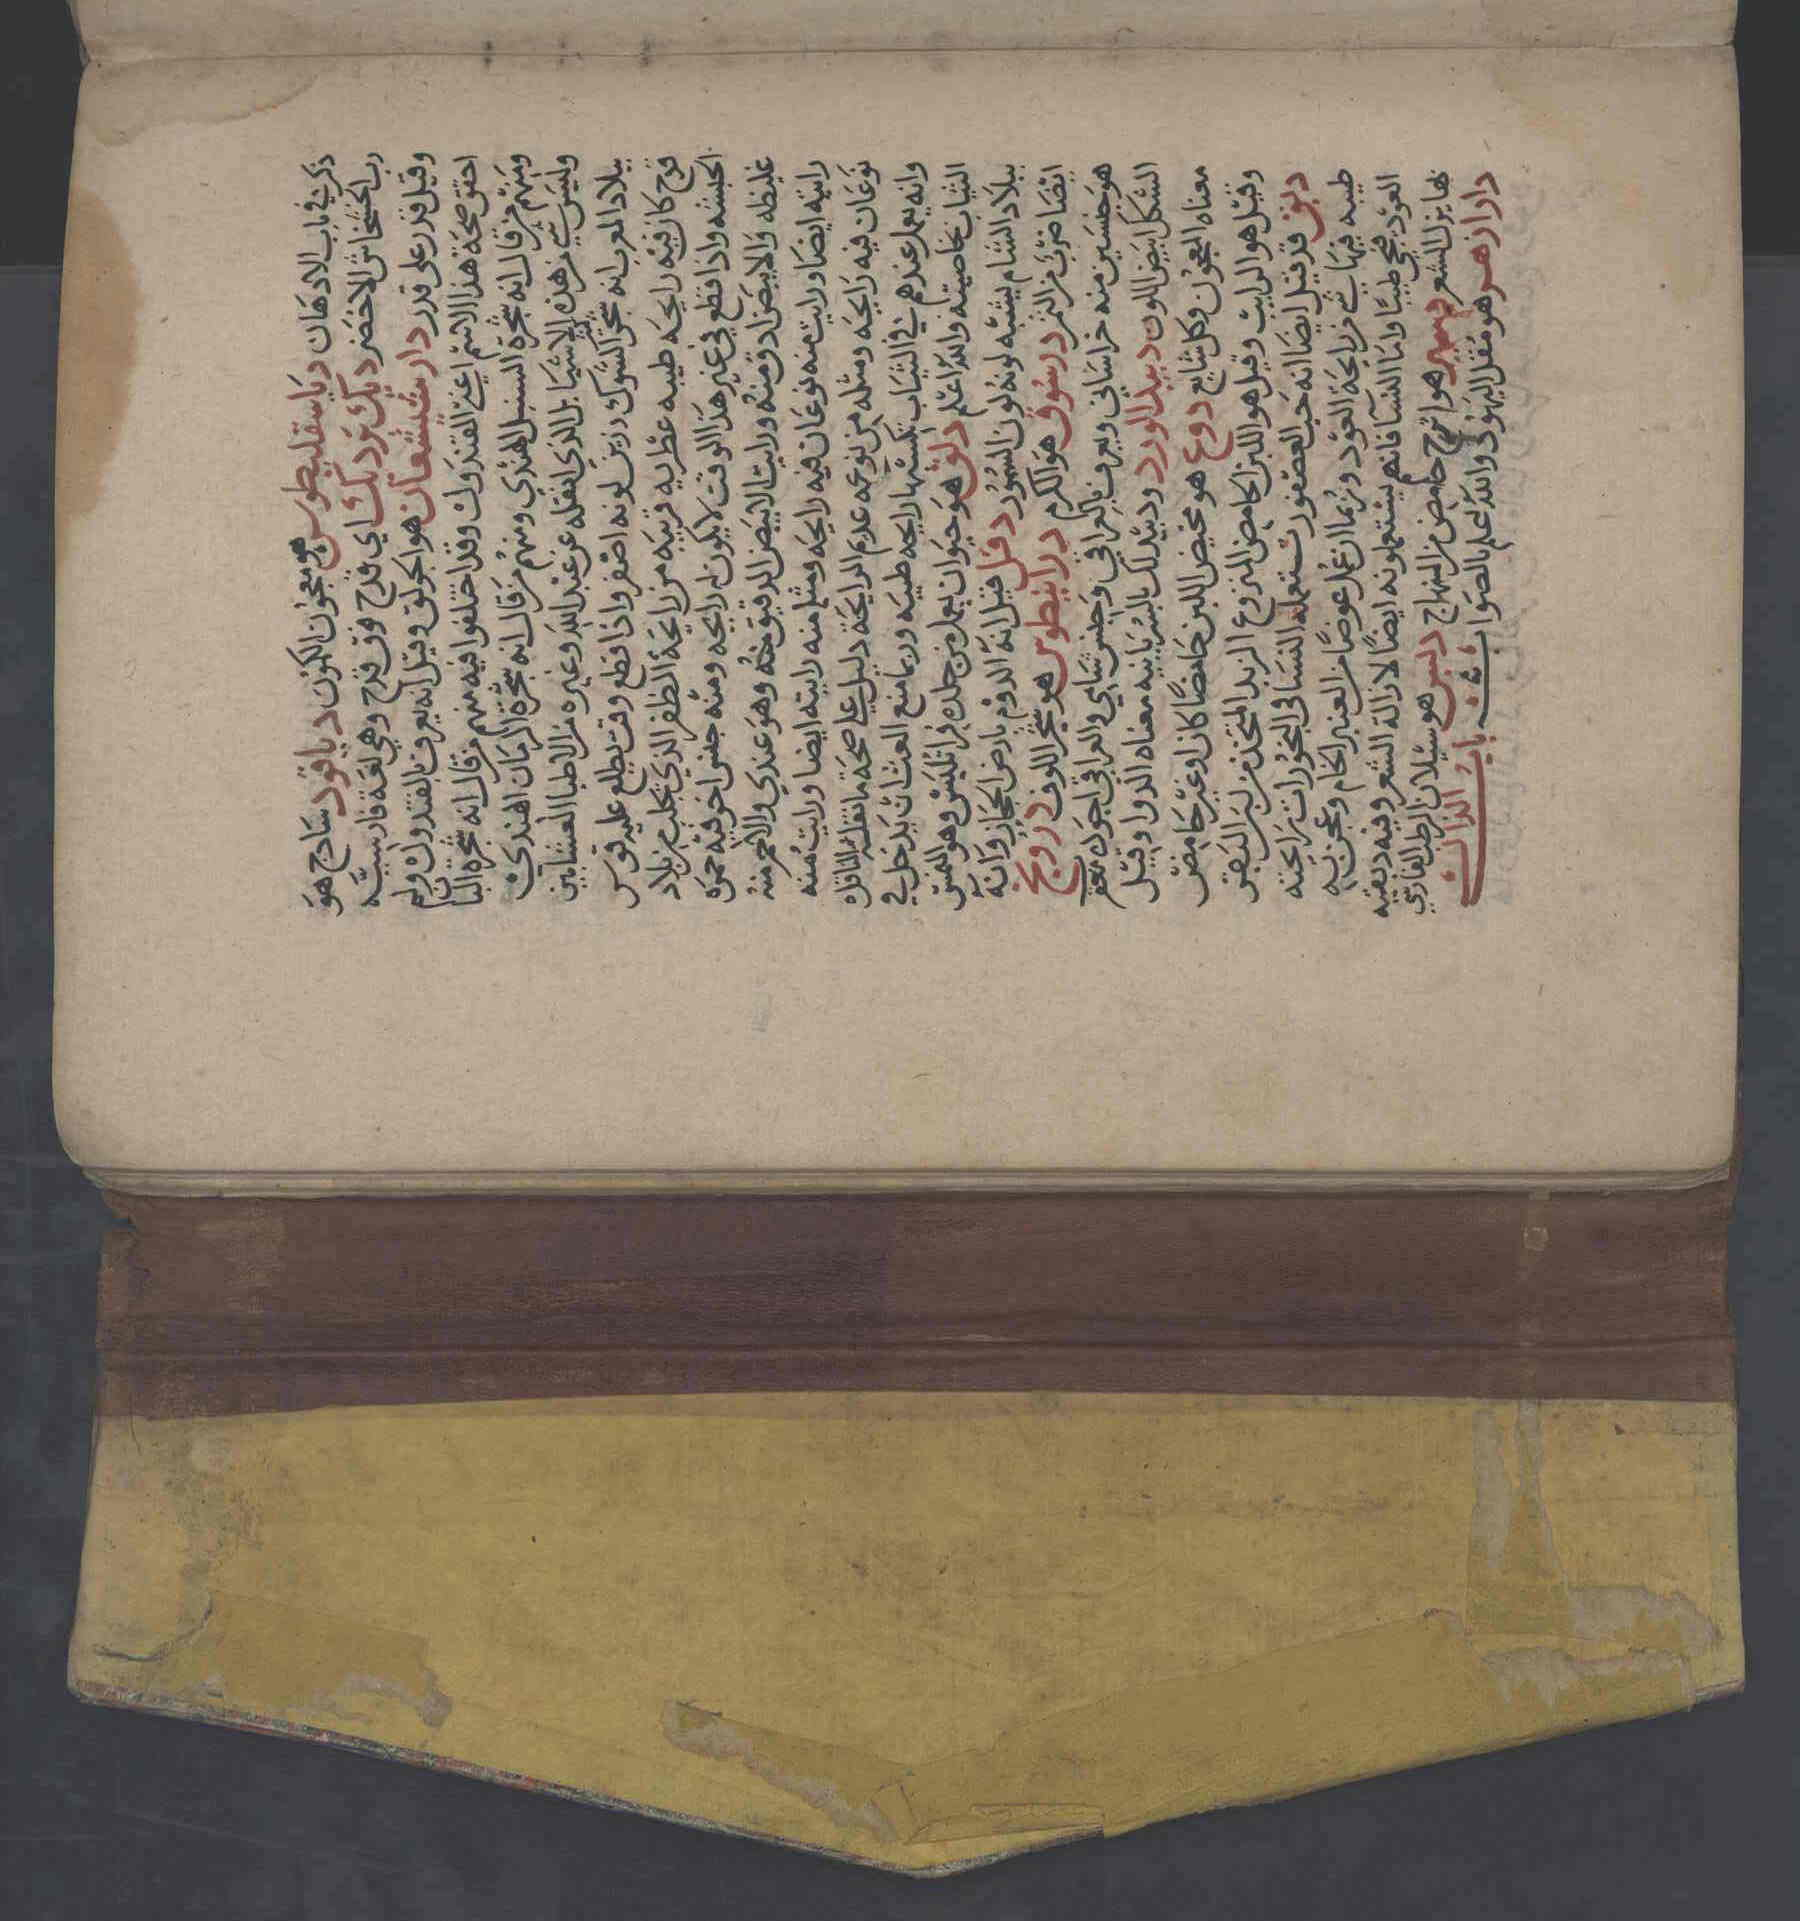 ذكر في باب الادهان دياسقليطوس هو معجون الكمون دياقود ساذج هو
رب الخشخاش الاخضر ديك بر ديك اي قدح فوق قدح وهي لغة فارسية
وقيل قدر على قدر دار شيشعان هو الجولق وقيل انه يعرف بالقندول ولم
احقق صحة هذا الاسم اعني القندول وقد اختلفوا فيه فمنهم من قال انه شجرة البا
ومنهم من قال انه شجرة السنبل الهندي ومنهم من قال انه شجرة الرمان الهندي
وليس شي من هذه الاشيا بل الذي انقله عن عبد الله وغيره من الاطبا العشابين
ببلاد المغرب انه شجر الشوك رزين لونه اصفر واذا قطع وقت يطلع عليه قوس
قزح كان فيه رايحه طيبه عطريه قريبه من رايحة الظفر الذي يجلب من بلاد
الحبشه واذا قطع في غير هذا الوقت لا يكون له رايحه ومنه جنس اخر فيه حمره
غليظه والابيض ادق منه ورايت الابيض الدقيق منه وهو عندي والاحمر منه
رايته ايضا ورايت منه نوعان فيه رايحه ومثله منه رايته ايضا ورايت منه
نوعان فيه رايحه ومثله من نوعه عديم الرايحة دليل على صحة ما نقله الناقله
وانه يعمل عندهم في الثياب تكسبها رايحه طيبه وربما منع العث ان يدخل في
الثياب بخاصيته والله اعلم دلق هو حيوان يعمل من جلده فرا تلبس وهو النمس
ببلاد الشام يشبه لونه لون السمور دقل قيل انه الدوم بارض الحجاز وانه
ايضا ضرب من التمر درسوق هو الكرم درانيطوس هو شجر اللوف درونج
هو جنسين منه خراساني ويعرف بالعراقي وجنس شامي والعراقي اجود معقرب
الشكل ابيض اللون دبيد الورد ودبيد لك بالسريانيه معناه الدوا وقيل
معناه المعجون وكل شايع دوع هو مخيض اللبن حامضا كان او غير حامض
وقيل هو الرايب وقيل هو اللبن الحامض المنزوع الزبد المتخذ من لبن البقر
دبق قد قيل ايضا انه حب العصفور تستعمله النسا في البخورات رايحته
طيبه فيها شي من رايحة العود وربما ان عمل عوضا من العنبر الخام وعجن به
العود فيجي طيبا واما النسا فانهم يستعملونه ايضا لازالة الشعر وفيه دبقيه
بها يزل الشعر هو اترج حامض من المنهاج دلبس هو سيلان الرطب الفارسي
داراز هر هو مقل اليهود والله اعلم بالصواب باب الذال